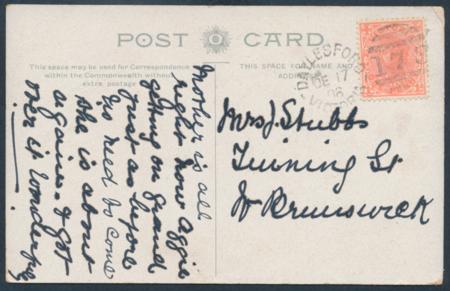 POST CARD
This space may be used for Correspondence
within the Commonwealth without
extra postage
THIS SPACE IS FOR NAME AND
ADDRESS
DAYLESFORD
DE 17
06
VICTORIA
17
Mother is all
right now Aggie
getting on grand
just as before
no need to come
She is about
again & got
over it wonderfully
Mrs J. Stubbs
Tuining St
W Brunswick